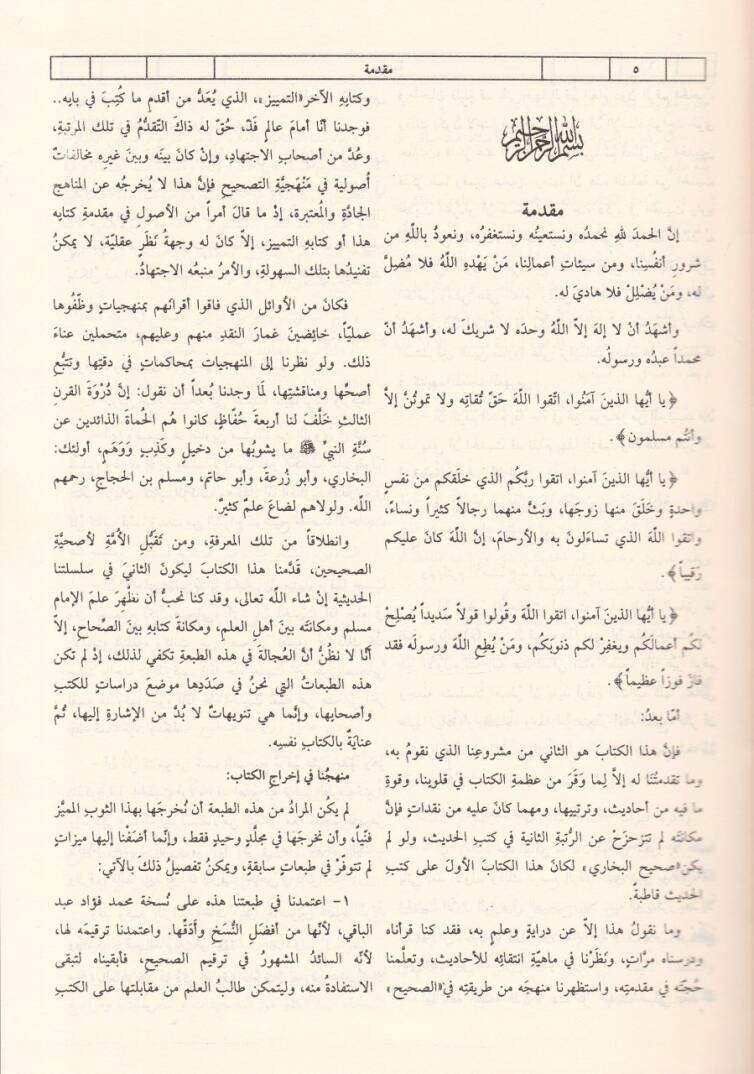 ٥
مقدمة
بسم الله الرحمن الرحيم
مقدمة
إنَّ الحمدَ للهِ نحمدُه ونستعينُه ونستغفرُه، ونعوذُ باللَّهِ من
شرورِ أنفُسِنا، ومن سيئاتِ أعمالِنا، مَنْ يَهْدِهِ اللَّهُ فلا مُضِلَّ
له، ومَنْ يُضْلِلْ فلا هاديَ له.
وأشهَدُ أنْ لا إلهَ إلاَّ اللَّهُ وحدَه لا شريكَ له، وأشهَدُ أنَّ
محمداً عبدُه ورسولُه.
﴿يا أيُّها الذينَ آمَنُوا، اتَّقوا اللَّهَ حَقَّ تُقاتِه ولا تموتُنَّ إلاَّ
وأنتُم مسلمون﴾.
﴿يا أيُّها الذينَ آمنوا، اتقوا ربَّكُم الذي خلَقكم من نفسٍ
واحدةٍ وخَلَقَ منها زوجَها، وبَثَّ منهما رجالاً كثيراً ونساءً،
واتقوا اللَّهَ الذي تساءَلونَ به والأرحامَ، إنَّ اللَّهَ كانَ عليكم
رَقيباً﴾.
﴿يا أيُّها الذينَ آمنوا، اتقوا اللَّهَ وقُولوا قولاً سَديداً يُصْلِحْ
لكُم أعمالَكُم ويغفِرْ لكم ذنوبَكُم، ومَنْ يُطِعِ اللَّهَ ورسولَه فقد
فازَ فوزاً عظيماً﴾.
أمّا بعدُ:
فإنَّ هذا الكتابَ هو الثاني من مشروعِنا الذي نقومُ به،
وما تقدمتُنا له إلاَّ لِما وَقَرَ من عظمةِ الكتابِ في قلوبنا، وقوةِ
ما فيه من أحاديثَ، وترتيبِها، ومهما كانَ عليه من نقداتٍ فإنَّ
مكانتَه لم تتزحزَحْ عن الرُّتبةِ الثانية في كتبِ الحديث، ولو لم
يكن «صحيح البخاري» لكانَ هذا الكتابَ الأولَ على كتبِ
الحديث قاطبةً.
وما نقولُ هذا إلاَّ عن درايةٍ وعلمٍ به، فقد كنا قرأناه
ودرسناه مرَّاتٍ، ونَظَرْنا في ماهيّةِ انتقائِه للأحاديث، وتعلَّمنا
حُجتَه في مقدمتِه، واستظهرنا منهجَه من طريقتِه في «الصحيح»
وكتابِهِ الآخر «التمييز»، الذي يُعَدُّ من أقدمِ ما كُتِبَ في بابِه..
فوجدنا أنَّا أمامَ عالمٍ فَذّ، حُقّ له ذاكَ التّقدُّمُ في تلك المرتبةِ،
وعُدَّ من أصحابِ الاجتهادِ، وإنْ كانَ بينَه وبينَ غيرِه مخالفاتٌ
أُصولية في مَنْهَجِيَّةِ التصحيحِ فإنَّ هذا لا يُخرجُه عن المناهجِ
الجادَّةِ والمُعتبرة، إذْ ما قالَ أمراً من الأصولِ في مقدمةِ كتابِه
هذا أو كتابِه التمييز، إلاَّ كانَ له وجهةُ نَظَرٍ عقليّة، لا يمكنُ
تفنيدُها بتلك السهولةِ، والأمرُ منبعُه الاجتهادُ.
فكانَ من الأوائل الذي فاقوا أقرانَهم بمنهجياتٍ وظَّفُوها
عملياً، خائِضينَ غمارَ النقدِ منهم وعليهم، متحملين عناءَ
ذلك. ولو نظرنا إلى المنهجياتِ بمحاكماتٍ في دقتِها وتتبُّعِ
أصحِّها ومناقشتِها، لَما وجدنا بُعداً أن نقول: إنَّ ذُرْوَةَ القرنِ
الثالثِ خَلَّفَ لنا أربعةَ حُفّاظٍ، كانوا هُم الحُماةَ الذائدين عن
سُنَّةِ النبيِّ ﷺ ما يشوبُها من دخيلٍ وكَذِبٍ وَوَهَمٍ، أولئك:
البخاري، وأبو زُرعةَ، وأبو حاتم، ومسلم بن الحجاجِ، رحمهم
اللَّه. ولولاهم لضاعَ علمٌ كثيرٌ.
وانطلاقاً من تلك المعرفةِ، ومن تَقَبُّلِ الأُمَّةِ لأصحيَّةِ
الصحيحين، قَدَّمنا هذا الكتابَ ليكونَ الثانيَ في سلسلتنا
الحديثية إنْ شاء اللَّه تعالى، وقد كنا نحبُّ أن نظْهِرَ علمَ الإمام
مسلم ومكانتَه بينَ أهلِ العلمِ، ومكانةَ كتابهِ بينَ الصِّحاحِ، إلاَّ
أنَّا لا نظُنُّ أنَّ العُجالةَ في هذه الطبعةِ تكفي لذلك، إذْ لم تكن
هذه الطبعاتُ التي نحنُ في صَدَدِها موضعَ دراساتٍ للكتبِ
وأصحابِها، وإنَّما هي تنويهاتٌ لا بُدَّ من الإشارةِ إليها، ثُمَّ
عنايَةٌ بالكتابِ نفسِه.
منهجُنا في إخراجِ الكتاب:
لم يكُن المرادُ من هذه الطبعة أن نُخرجَها بهذا الثوبِ المميَّز
فنّياً، وأن نخرجَها في مجلَّدٍ وحيدٍ فقط، وإنَّما أضَفْنا إليها ميزاتٍ
لم تتوفّر في طبعاتٍ سابقةٍ، ويمكنُ تفصيلُ ذلكَ بالآتي:
١- اعتمدنا في طبعتنا هذه على نُسخة محمد فؤاد عبد
الباقي، لأنَّها من أفضلِ النُّسَخِ وأدَقِّها. واعتمدنا ترقيمَه لها،
لأنَّه السائدُ المشهورُ في ترقيمِ الصحيحِ، فأبقيناه لتبقى
الاستفادةُ منه، وليتمكن طالبُ العلم من مقابلتِها على الكتبِ